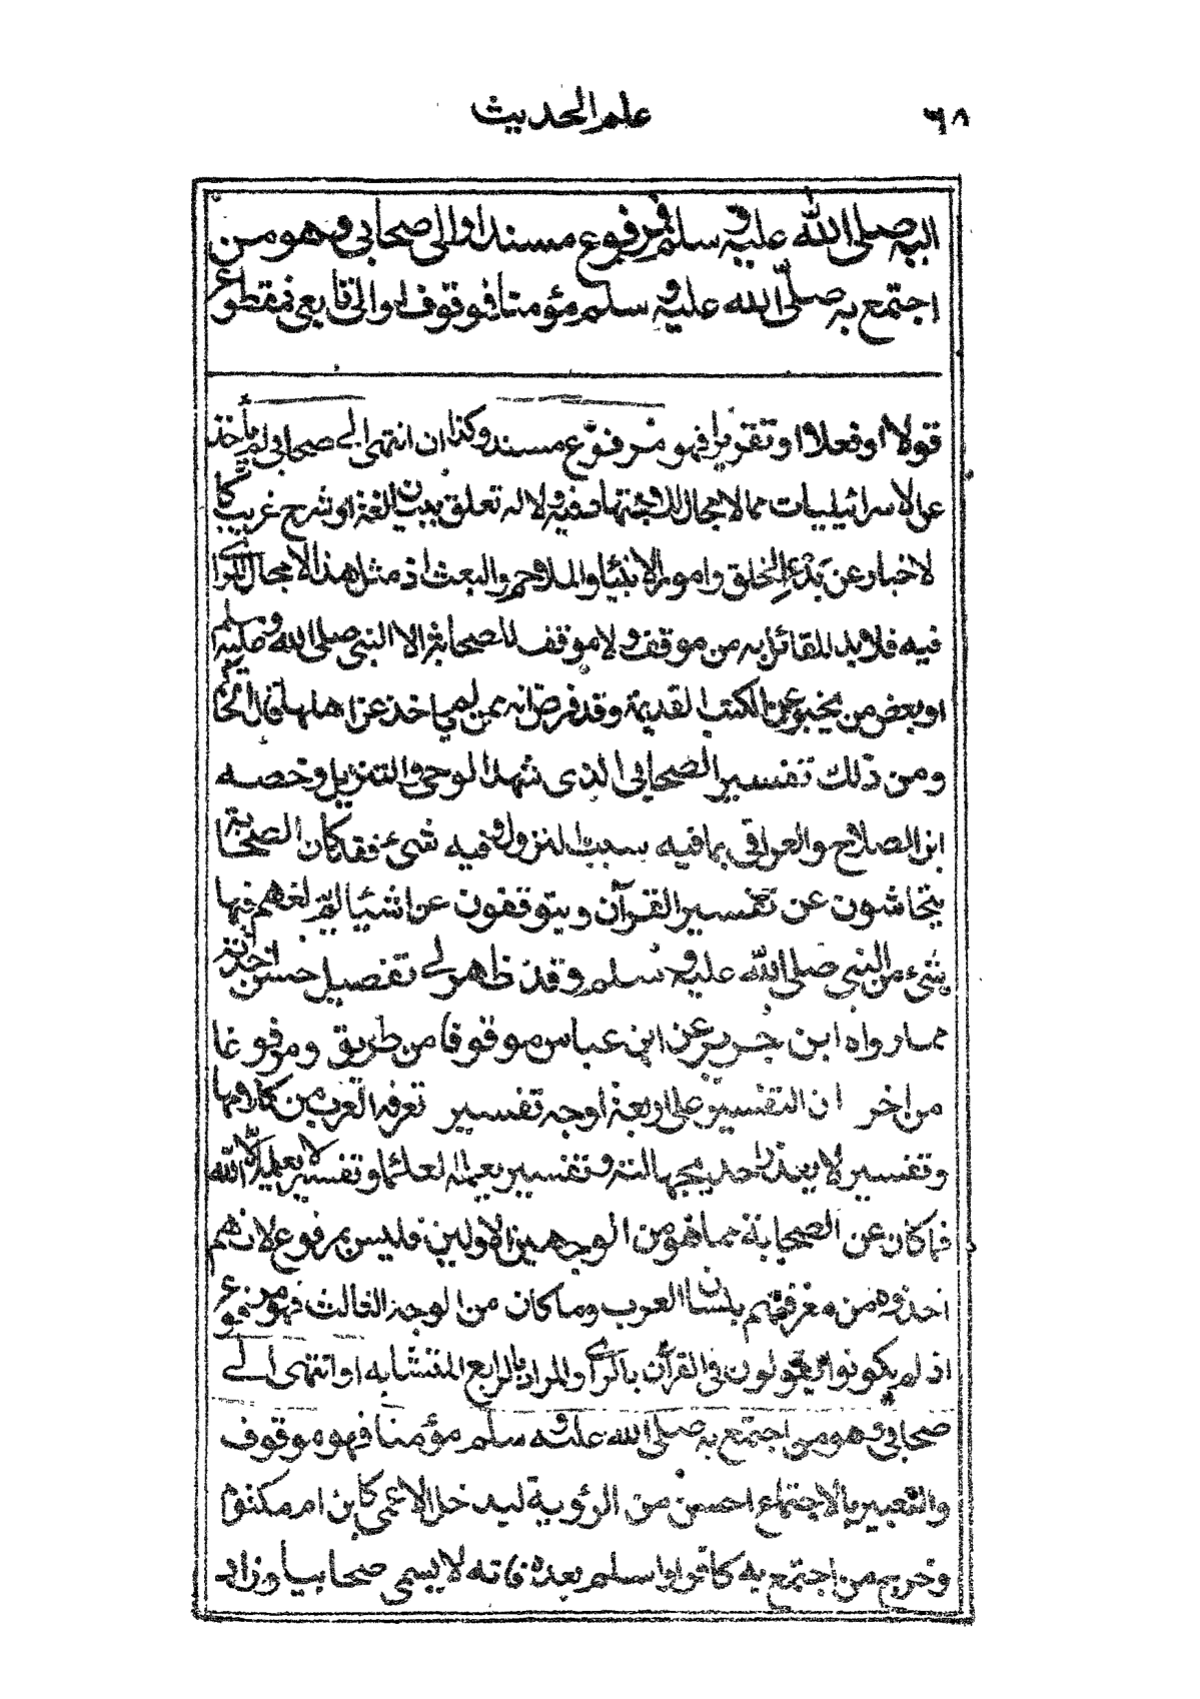 ٦٨
علم الحديث
اليه صلى الله عليه وسلم فمرفوع مسند او الى صحابي وهو من
اجتمع به صلى الله عليه وسلم مؤمنا فموقوف او الى تابعي فمقطوع
قولا او فعلا او تقريرا فهو مرفوع مسند وكذا ان انتهى الى صحابي لم ياخذ
عن الاسرائيليات مما لا مجال للاجتهاد فيه ولا له تعلق ببيان لغة او شرح غريب كا
لاخبار عن بدء الخلق وامور الانبياء والملاحم والبعث اذ مثل هذا لا مجال للراي
فيه فلا بد للقائل به من موقف ولا موقف للصحابة الا النبي صلى الله عليه وسلم
او بعض من يخبر عن الكتب القديمة وقد فرض انه ممن لم ياخذ عن اهلها قال الحاكم
ومن ذلك تفسير الصحابي الذي شهد الوحي والتنزيل وخصه
ابن الصلاح والعراقي بما فيه سبب النزول وفيه شيء فقد كان الصحابة
يتحاشون عن تفسير القرآن ويتوقفون عن اشياء لم يبلغهم فيها
شيء من النبي صلى الله عليه وسلم وقد ظهر لي تفصيل حسن اخذته
مما رواه ابن جرير عن ابن عباس موقوفا من طريق ومرفوعا
من اخر ان التفسير على اربعة اوجه تفسير تعرفه العرب من كلامها
وتفسير لا يعذر احد بجهالته وتفسير يعلمه العلماء وتفسير لا يعلمه الا الله
فما كان عن الصحابة مما هو من الوجهين الاولين فليس بمرفوع لانهم
اخذوه من معرفتهم بلسان العرب وما كان من الوجه الثالث فهو مرفوع
اذ لم يكونوا يقولون في القرآن بالراي والمراد بالرابع المتشابه او انتهى الى
صحابي وهو من اجتمع به صلى الله عليه وسلم مؤمنا فهو موقوف
والتعبير بالاجتماع احسن من الرؤية ليدخل الاعمى كابن ام مكتوم
وخرج من اجتمع به كافرا واسلم بعد وفاته لا يسمى صحابيا وزاد